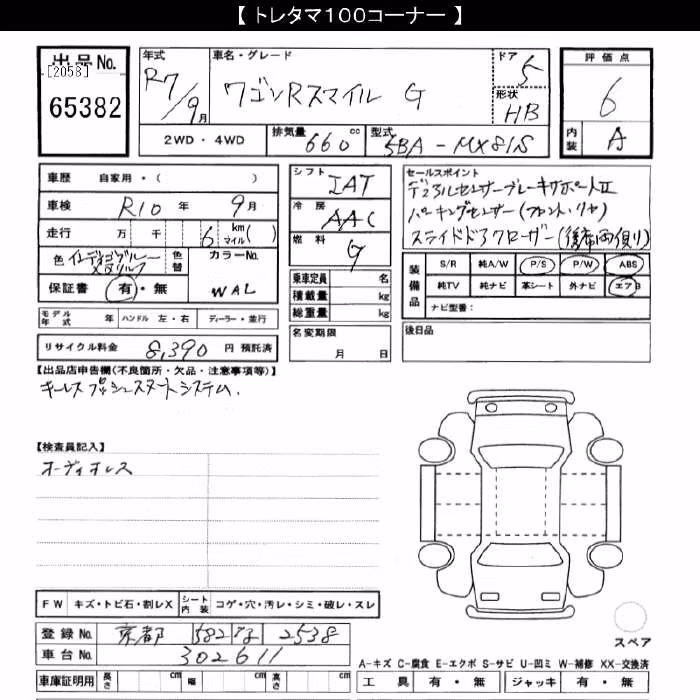 【 トレタマ１００コーナー 】
出品No.
[2058]
65382
年式
R7/9月
車名・グレード
ワゴンRスマイル G
ドア 5
形状 HB
評価点
6
内装 A
2WD・4WD
排気量 660 cc
型式 5BA-MX81S
車歴 自家用・( )
車検 R10 年 9 月
走行 万 千 6 km マイル( )
色 インディゴブルー
色替
カラーNo.
WAL
保証書 有・無
モデル年式 年 ハンドル 左・右 ディーラー・並行
リサイクル料金 8,390 円 預託済
シフト IAT
冷房 AAC
燃料 G
乗車定員 名
積載量 kg
総重量 kg
名変期限
月 日
セールスポイント
デュアルセンサーブレーキサポートII
パーキングセンサー(フロント・リヤ)
スライドドアクローザー(後席両側)
装備品
S/R 純A/W P/S P/W ABS
純TV 純ナビ 革シート 外ナビ エアB
ナビ型番：
後日品
【出品店申告欄(不良箇所・欠品・注意事項等)】
キーレスプッシュスタートシステム.
【検査員記入】
オーディオレス
FW キズ・トビ石・割レX シート内装 コゲ・穴・汚レ・シミ・破レ・スレ
登録No. 京都 582 2538
車台No. 302611
車庫証明用 長さ cm 幅 cm 高さ cm
スペア
A-キズ C-腐食 E-エクボ S-サビ U-凹ミ W-補修 XX-交換済
工具 有・無 ジャッキ 有・無